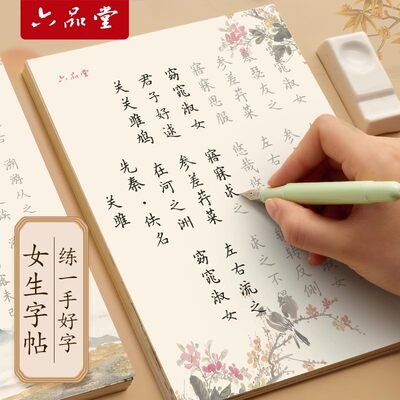 六品堂
六品堂
关雎
先秦·佚名
关关雎鸠
在河之洲
窈窕淑女
君子好逑
参差荇菜
左右流之
窈窕淑女
寤寐求之
求之不
寤寐思服
悠哉
反侧
参差荇菜
琴瑟友之
参
溯游从之
练一手好字
女生字帖